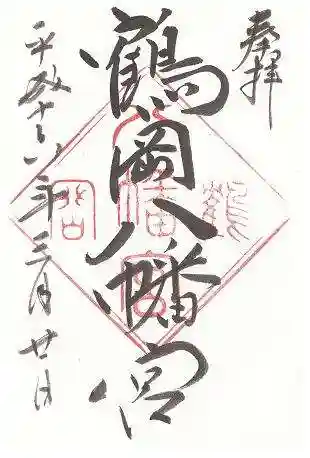 奉拝
鶴岡八幡宮
平成十年三月廿日